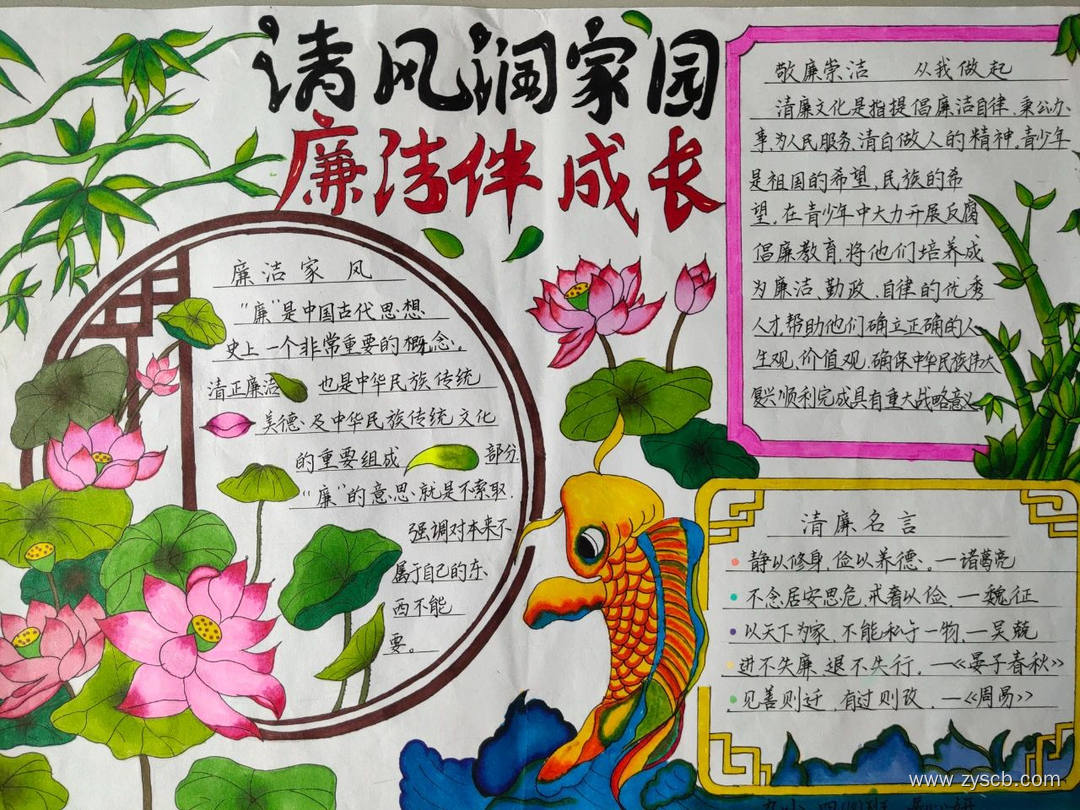 清风润家园
廉洁伴成长
廉洁家风
"廉"是中国古代思想
史上一个非常重要的概念。
清正廉洁 也是中华民族传统
美德 及中华民族传统文化
的重要组成 部分
"廉"的意思就是不索取.
强调对本来不
属于自己的东
西不能
要。
敬廉崇洁 从我做起
清廉文化是指提倡廉洁自律,秉公办
事,为人民服务、清白做人的精神,青少年
是祖国的希望,民族的希
望,在青少年中大力开展反腐
倡廉教育,将他们培养成
为廉洁、勤政、自律的优秀
人才,帮助他们确立正确的人
生观、价值观,确保中华民族伟大
复兴顺利完成具有重大战略意义
清廉名言
静以修身,俭以养德。—诸葛亮
不念居安思危,戒奢以俭.—魏征
以天下为家,不能私于一物,—吴兢
进不失廉,退不失行.—《晏子春秋》
见善则迁,有过则改.—《周易》
www.zyscb.com